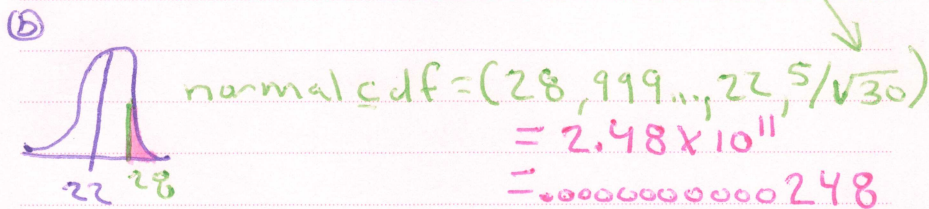 b
normalcdf=(28,999...,22,5/√30)
= 2.48 x 10^11
=.0000000000248
22 28